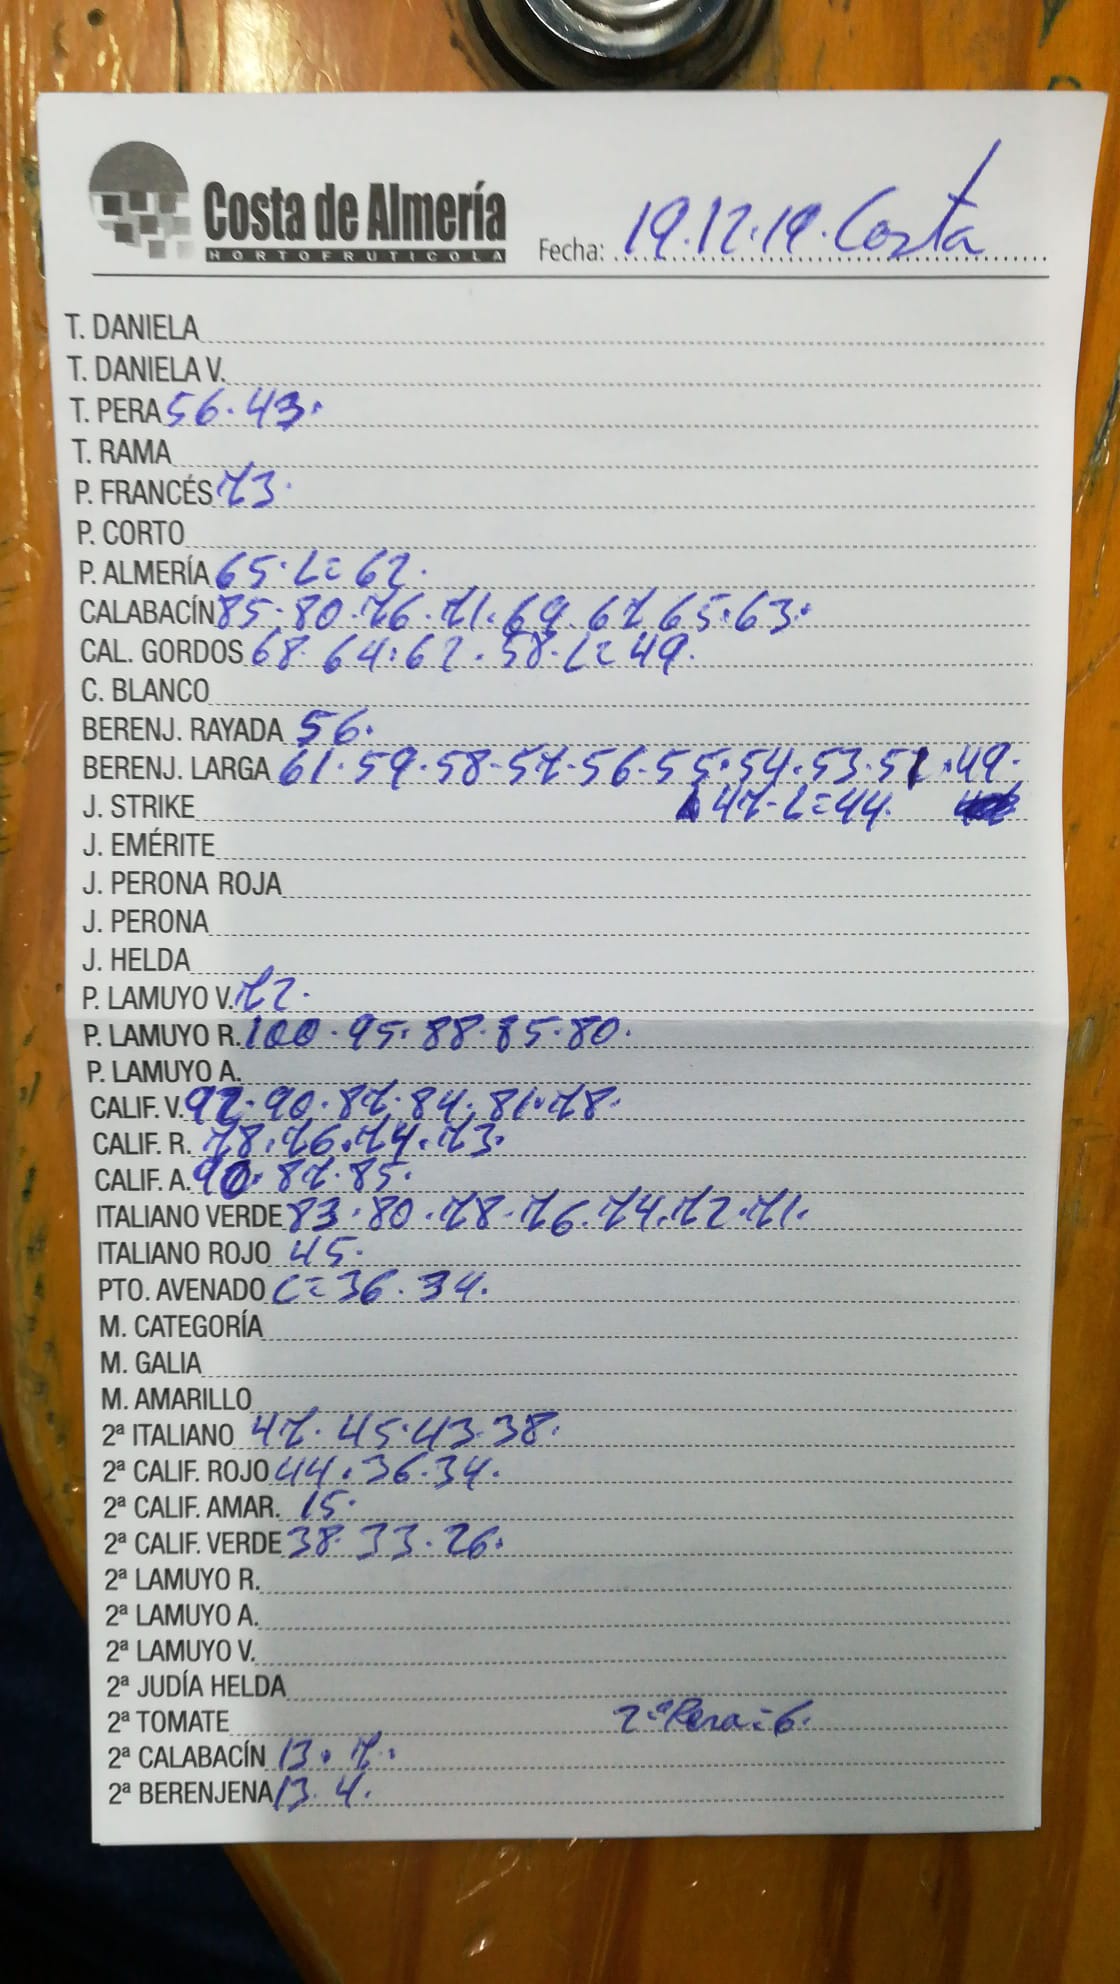 Costa de Almería
HORTOFRUTICOLA
Fecha: 19.12.19. Costa
T. DANIELA
T. DANIELA V.
T. PERA 56. 43.
T. RAMA
P. FRANCÉS 73.
P. CORTO
P. ALMERÍA 65. L= 62.
CALABACÍN 85. 80. 76. 71. 69. 67. 65. 63.
CAL. GORDOS 68. 64. 62. 58. L= 49.
C. BLANCO
BERENJ. RAYADA 56.
BERENJ. LARGA 61. 59. 58. 57. 56. 55. 54. 53. 51. 49.
J. STRIKE 47. L= 44.
J. EMÉRITE
J. PERONA ROJA
J. PERONA
J. HELDA
P. LAMUYO V. 72.
P. LAMUYO R. 100. 95. 88. 85. 80.
P. LAMUYO A.
CALIF. V. 92. 90. 87. 84. 81. 78.
CALIF. R. 78. 76. 74. 73.
CALIF. A. 90. 87. 85.
ITALIANO VERDE 83. 80. 78. 76. 74. 72. 71.
ITALIANO ROJO 45.
PTO. AVENADO C= 36. 34.
M. CATEGORÍA
M. GALIA
M. AMARILLO
2ª ITALIANO 47. 45. 43. 38.
2ª CALIF. ROJO 44. 36. 34.
2ª CALIF. AMAR. 15.
2ª CALIF. VERDE 38. 33. 26.
2ª LAMUYO R.
2ª LAMUYO A.
2ª LAMUYO V.
2ª JUDÍA HELDA
2ª TOMATE 2ª Pera= 6.
2ª CALABACÍN 13. 7.
2ª BERENJENA 13. 4.